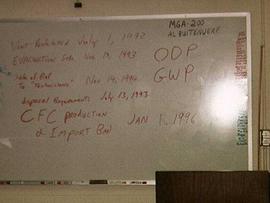 MGA-200
AL BUITENWERF
Vent Prohibited July 1, 1992
Evacuation Sets Nov 14, 1993
ODP
Sale of Ref To "Technicians" Nov 14, 1994
GWP
Disposal Requirements July 13, 1993
CFC PRODUCTION
& IMPORT BAN
JAN 1, 1996